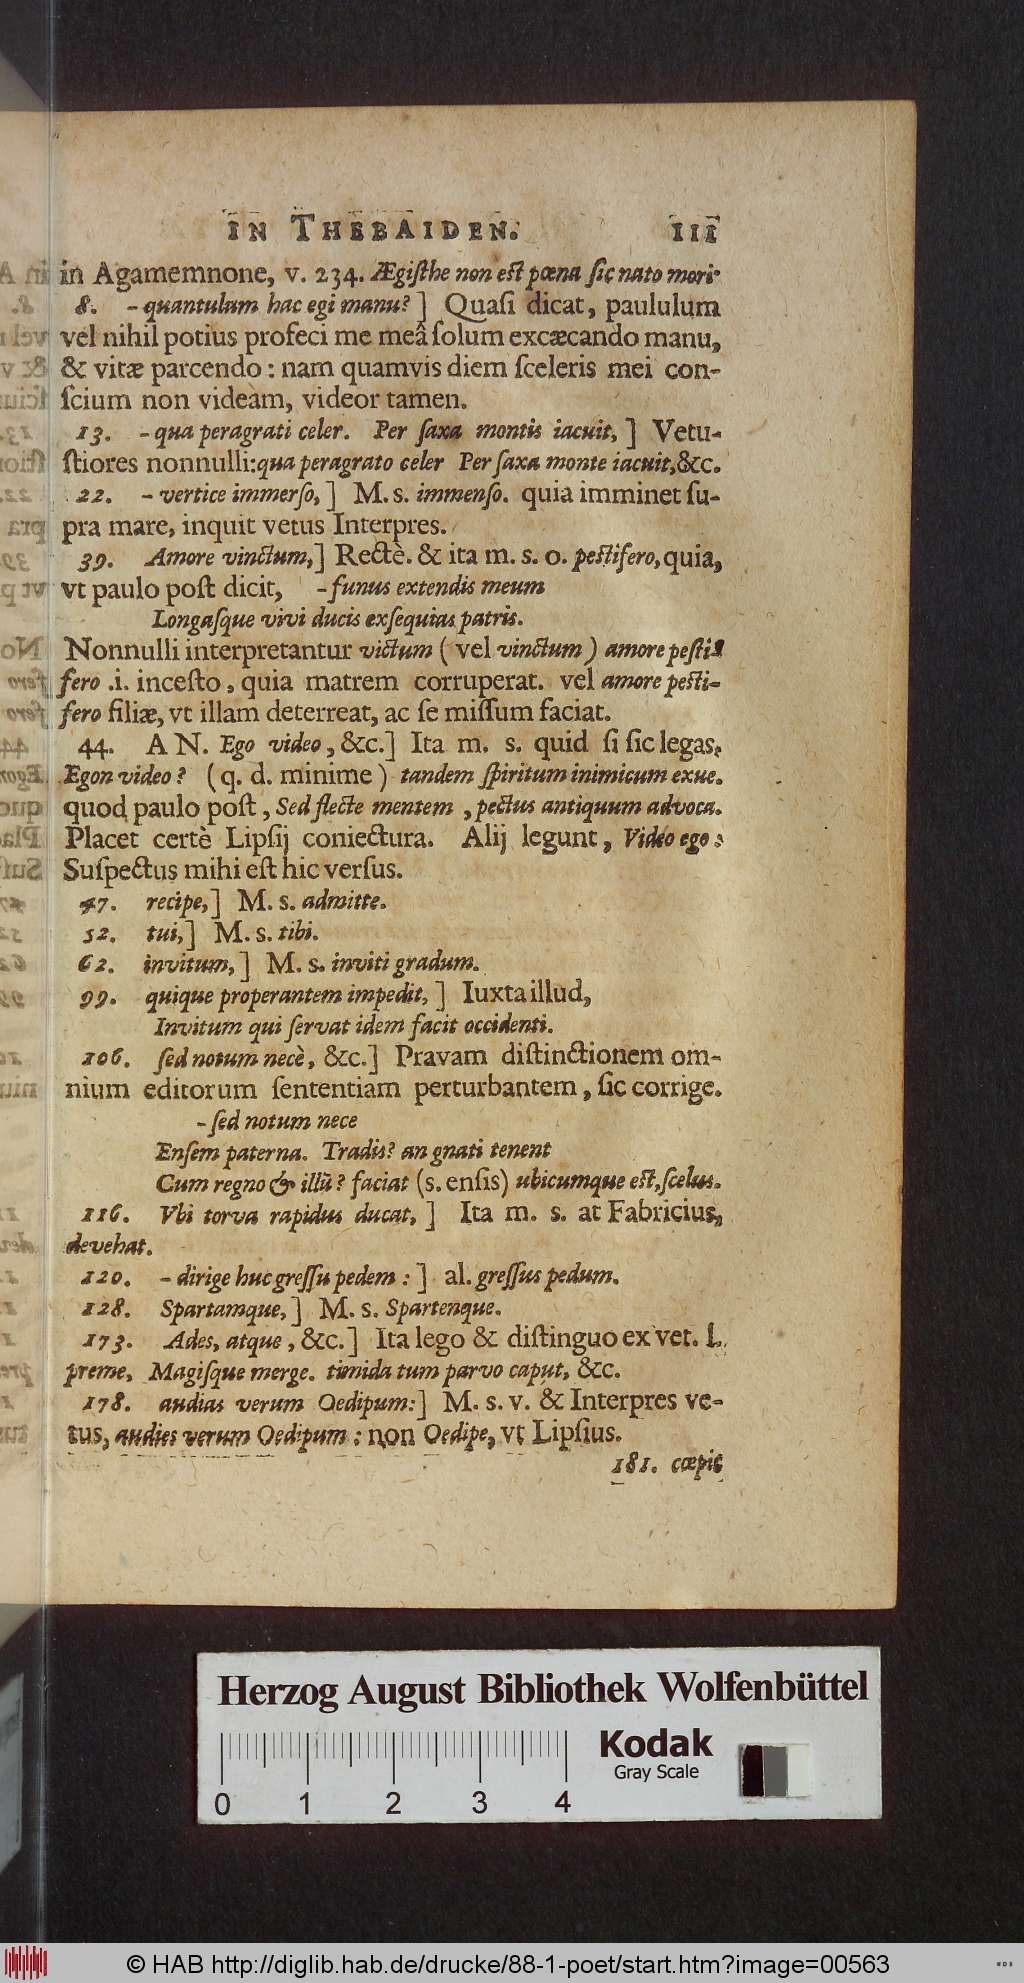 IN THEBAIDEN. III
in Agamemnone, v. 234. Ægiſthe non eſt pœna ſic nato mori
8. - quantulum hac egi manu? ] Quaſi dicat, paululum
vel nihil potius profeci me meâ ſolum excæcando manu,
& vitæ parcendo : nam quamvis diem ſceleris mei con-
ſcium non videam, videor tamen.
13. - qua peragrati celer. Per ſaxa montis iacuit, ] Vetu-
ſtiores nonnulli: qua peragrato celer Per ſaxa monte iacuit, &c.
22. - vertice immerſo, ] M. s. immenſo. quia imminet ſu-
pra mare, inquit vetus Interpres.
39. Amore vinctum, ] Rectè. & ita m. s. o. peſtifero, quia,
vt paulo poſt dicit, - funus extendis meum
Longaſque vivi ducis exſequias patris.
Nonnulli interpretantur victum ( vel vinctum ) amore peſti-
fero .i. inceſto, quia matrem corruperat. vel amore peſti-
fero filiæ, vt illam deterreat, ac ſe miſſum faciat.
44. AN. Ego video, &c.] Ita m. s. quid ſi ſic legas,
Egon video? ( q. d. minime ) tandem ſpiritum inimicum exue.
quod paulo poſt, Sed flecte mentem, pectus antiquum advoca.
Placet certè Lipſij coniectura. Alij legunt, Video ego :
Suſpectus mihi eſt hic verſus.
47. recipe, ] M. s. admitte.
52. tui, ] M. s. tibi.
62. invitum, ] M. s. inviti gradum.
99. quique properantem impedit, ] Iuxta illud,
Invitum qui ſervat idem facit occidenti.
106. ſed notum necè, &c.] Pravam diſtinctionem om-
nium editorum ſententiam perturbantem, ſic corrige.
- ſed notum nece
Enſem paterna. Tradis? an gnati tenent
Cum regno & illū? faciat (s. enſis) ubicumque eſt, ſcelus.
116. Vbi torva rapidus ducat, ] Ita m. s. at Fabricius,
devehat.
120. - dirige huc greſſu pedem : ] al. greſſus pedum.
128. Spartamque, ] M. s. Spartenque.
173. Ades, atque, &c.] Ita lego & diſtinguo ex vet. l.
preme, Magiſque merge. timida tum parvo caput, &c.
178. audias verum Oedipum: ] M. s. v. & Interpres ve-
tus, audies verum Oedipum : non Oedipe, vt Lipſius.
181. cœpit
Herzog August Bibliothek Wolfenbüttel
Kodak
Gray Scale
0 1 2 3 4
© HAB http://diglib.hab.de/drucke/88-1-poet/start.htm?image=00563